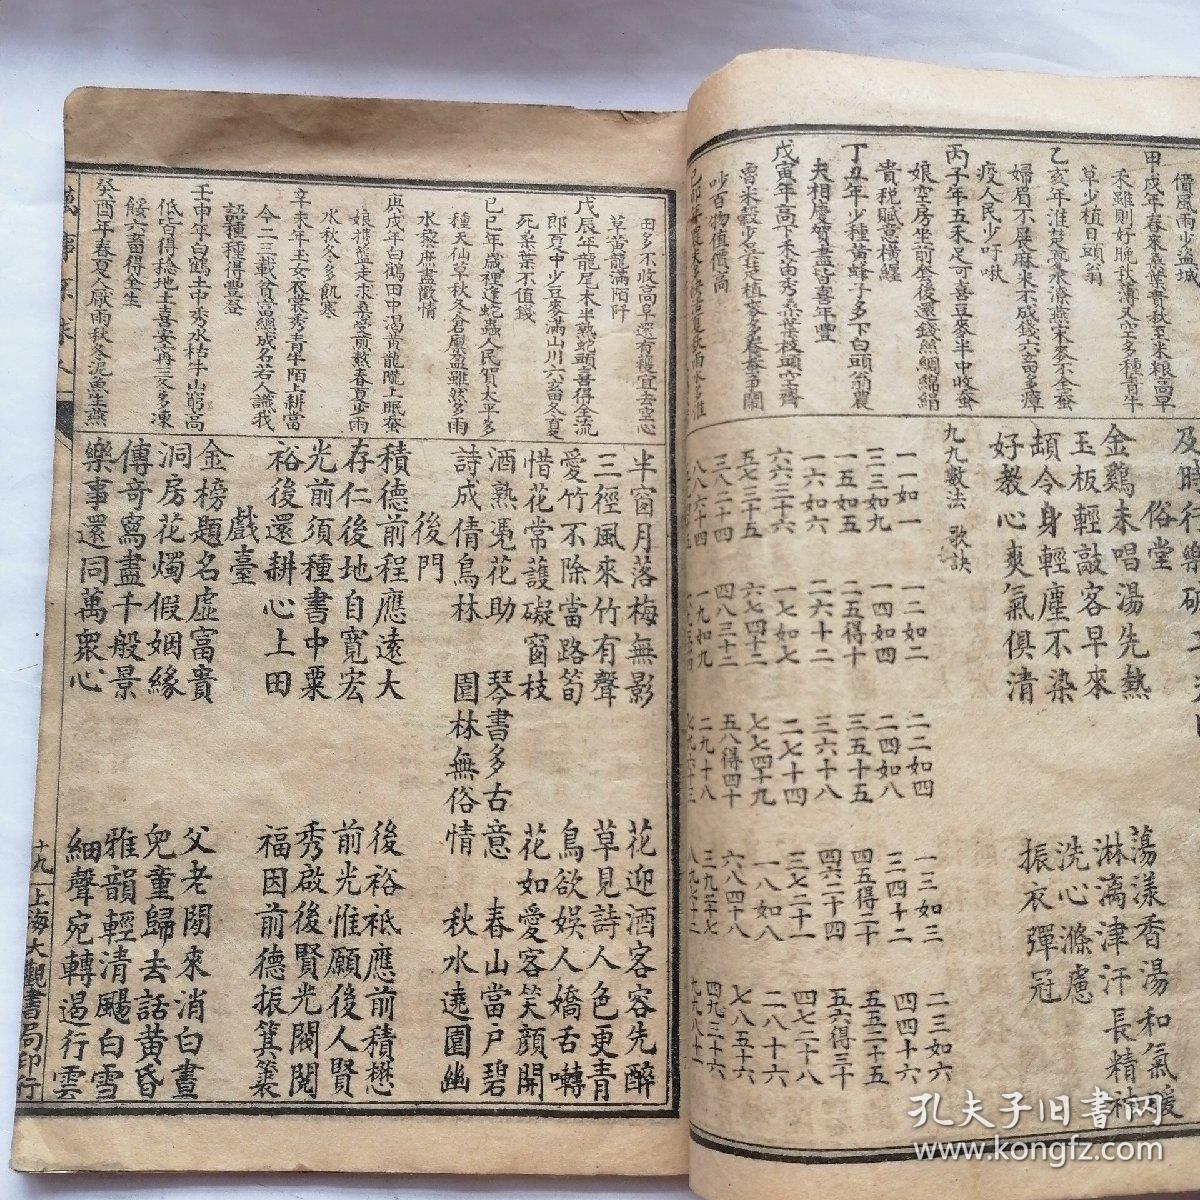 價風雨少益城
甲戌年春來桑葉貴秋至米糧高早
禾雖則好晚秋薄又空多種青牛
草少植日頭翁
疫人民少吁啾
丙子年五禾足可喜豆麥半中收蠶
娘空房坐前奎後還錢絲綢綿絹
貴稅賦苦橫經
丁丑年少種黃蜂子多下白頭翁農
夫相慶賀盡皆喜年豐
抄百物值價高
及時行樂
俗堂
金鷄未唱湯先熱
蕩漾香湯和氣暖
玉板輕敲客早來
淋漓津汗長精神
頡令身輕塵不染
洗心滌慮
好教心爽氣俱清
振衣彈冠
九九數法 歌訣
一一如一 一二如二 二二如四 一三如三 二三如六
三三如九 一四如四 二四如八 三四十二 四四十六
一五如五 二五得十 三五十五 四五得二十 五五二十五
一六如六 二六十二 三六十八 四六二十四 五六得三十
六六三十六 一七如七 二七十四 三七二十一 四七二十八
五七三十五 六七四十二 七七四十九 一八如八 二八十六
三八二十四 四八三十二 五八得四十 六八四十八 七八五十六
八八六十四 一九如九 二九十八 三九二十七 四九三十六
七九六十三 八九七十二 九九八十一
田多不收高阜還有穫宜去空心
草黃龍滿陌阡
戊辰年龍尾禾半熟蛇頭喜得全流
郎夏中少豆麥滿山川六畜冬夏
死桑葉不值錢
己巳年歲裡逢蛇蟲人民賀太平多
種天仙草秋冬倉廩盈雖然多雨
水裂庫盡徵情
庚午年白鶴田中渴黃龍隴上眠蠶
水秋冬多飢寒
辛未年玉女衣裳秀青牛陌上耕當
今二三載貧富總成名若人識我
語種種得豐登
壬申年白鶴土中秀水枯牛山窮高
低百得捻地土喜安寧三冬多凍
餒六畜得全生
癸酉年春夏人厭雨秋冬泥魚生燕
半窗月落梅無影
花迎酒客容先醉
三徑風來竹有聲
草見詩人色更青
愛竹不除當路筍
鳥欲娛人嬌舌囀
惜花常護礙窗枝
花如愛客笑顏開
酒熟凭花助 琴書多古意 春山當戶碧
詩成倩鳥林 園林無俗情 秋水遶園幽
後門
積德前程應遠大
後裕祇應前積懋
存仁後地自寬宏
前光惟願後人賢
光前須種書中粟
秀啟後賢光閥閱
裕後還耕心上田
福因前德振箕裘
戲臺
金榜題名虛富貴
父老閒來消白晝
洞房花燭假姻緣
兒童歸去話黃昏
傳奇寫盡千般景
雅韻輕清颺白雪
樂事還同萬衆心
細聲宛轉遏行雲
十九
上海大觀書局印行
孔夫子旧書网
www.kongfz.com